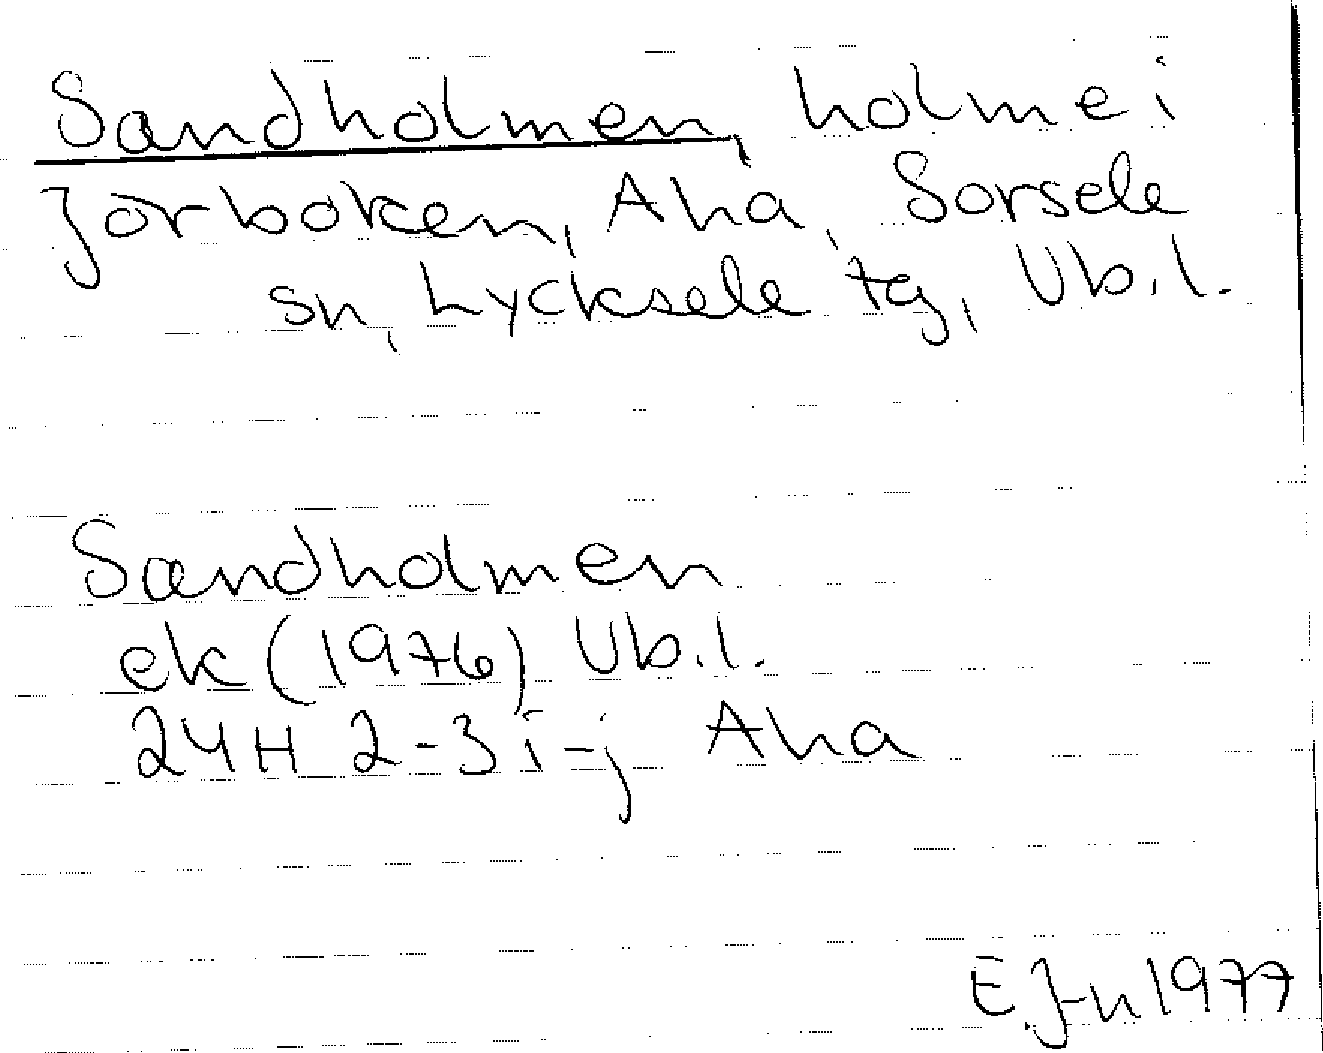 Sandholmen, holme i
Jorboken, Aha, Sorsele
sn, Lycksele tg, Vb.l.
Sandholmen
ek (1976) Vb.l.
24H 2-3 i-j Aha
E.J-n 1977